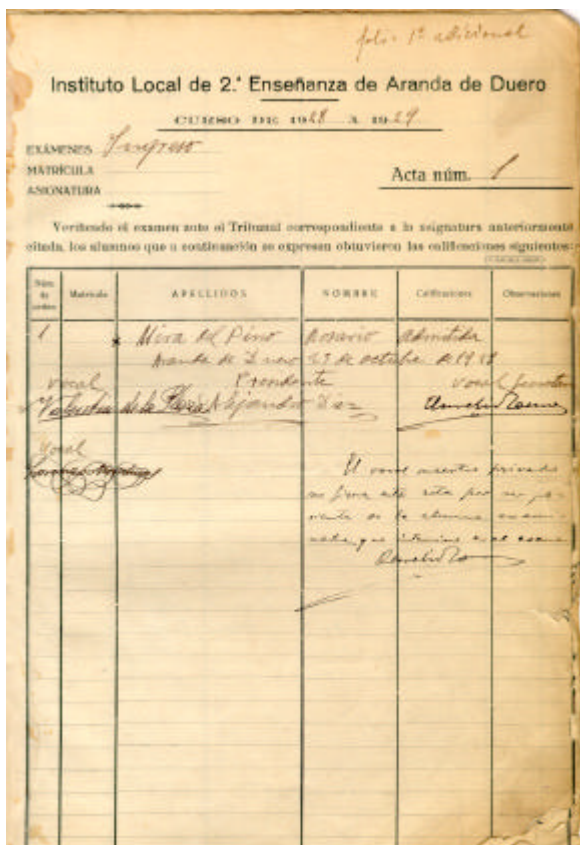 folio 1º adicional
Instituto Local de 2.ª Enseñanza de Aranda de Duero
CURSO DE 1928 A 1929
EXÁMENES Ingreso
MATRÍCULA
ASIGNATURA
Acta núm. 1
Verificado el examen ante el Tribunal correspondiente a la asignatura anteriormente
citada, los alumnos que a continuación se expresan obtuvieron las calificaciones siguientes:
Núm. de orden Matrícula APELLIDOS NOMBRE Calificaciones Observaciones
1 Mira del Pino Rosario Admitida
Aranda de Duero 29 de octubre de 1928
Vocal Presidente Vocal Secretario
Valentín de la Alejandro Díaz
Vocal
El vocal maestro privado
no firma esta acta por ser pa-
riente de la alumna exami-
nada, que en el examen